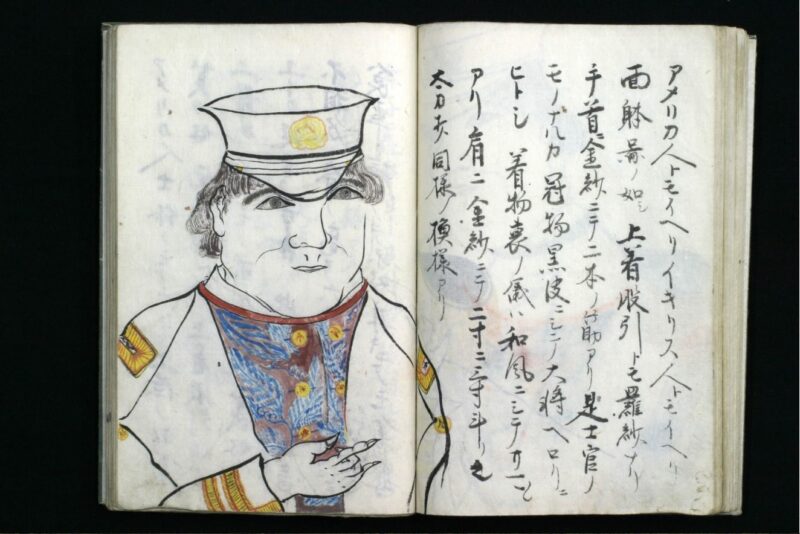 アメリカ人トモイヘリイキリス人トモイヘリ
面躰畧ノ如シ 上着股引トモ羅紗ナリ
手首ニ金紗ニテ二本ノ筋アリ是士官ノ
モノ 冠物黒皮ニシテ大将ヘロリニ
ヒトシ 着物裏ノ儀ハ和風ニシテカ
アリ肩ニ金紗ニテ二寸ニ三寸斗リ之
同様ノ模様アリ